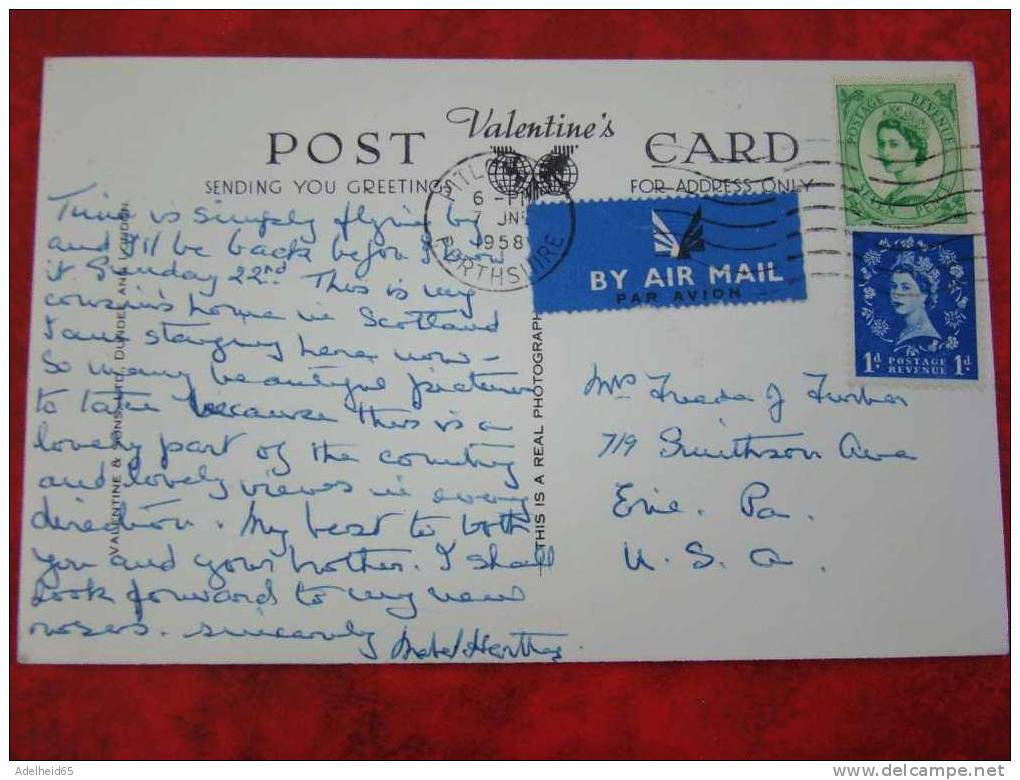 POST Valentine's CARD
SENDING YOU GREETINGS
FOR ADDRESS ONLY
PITLO
6 - PM
7 JNE
1958
PERTHSHIRE
POSTAGE REVENUE
SEVEN PENCE
BY AIR MAIL
PAR AVION
1d POSTAGE REVENUE 1d
Time is simply flying by
and I'll be back before I know
it Sunday 22nd. This is my
cousin's home in Scotland
I am staying here now -
So many beautiful pictures
to take because this is a
lovely part of the country
and lovely views in every
direction. My best to both
you and your mother. I shall
look forward to my new
roses. Sincerely
Mabel
VALENTINE & SONS, LTD., DUNDEE AND LONDON.
THIS IS A REAL PHOTOGRAPH
Mrs Freeda J
719 Smithson Ave
Erie. Pa.
U. S. A.
Adelheid65
delcampe.net